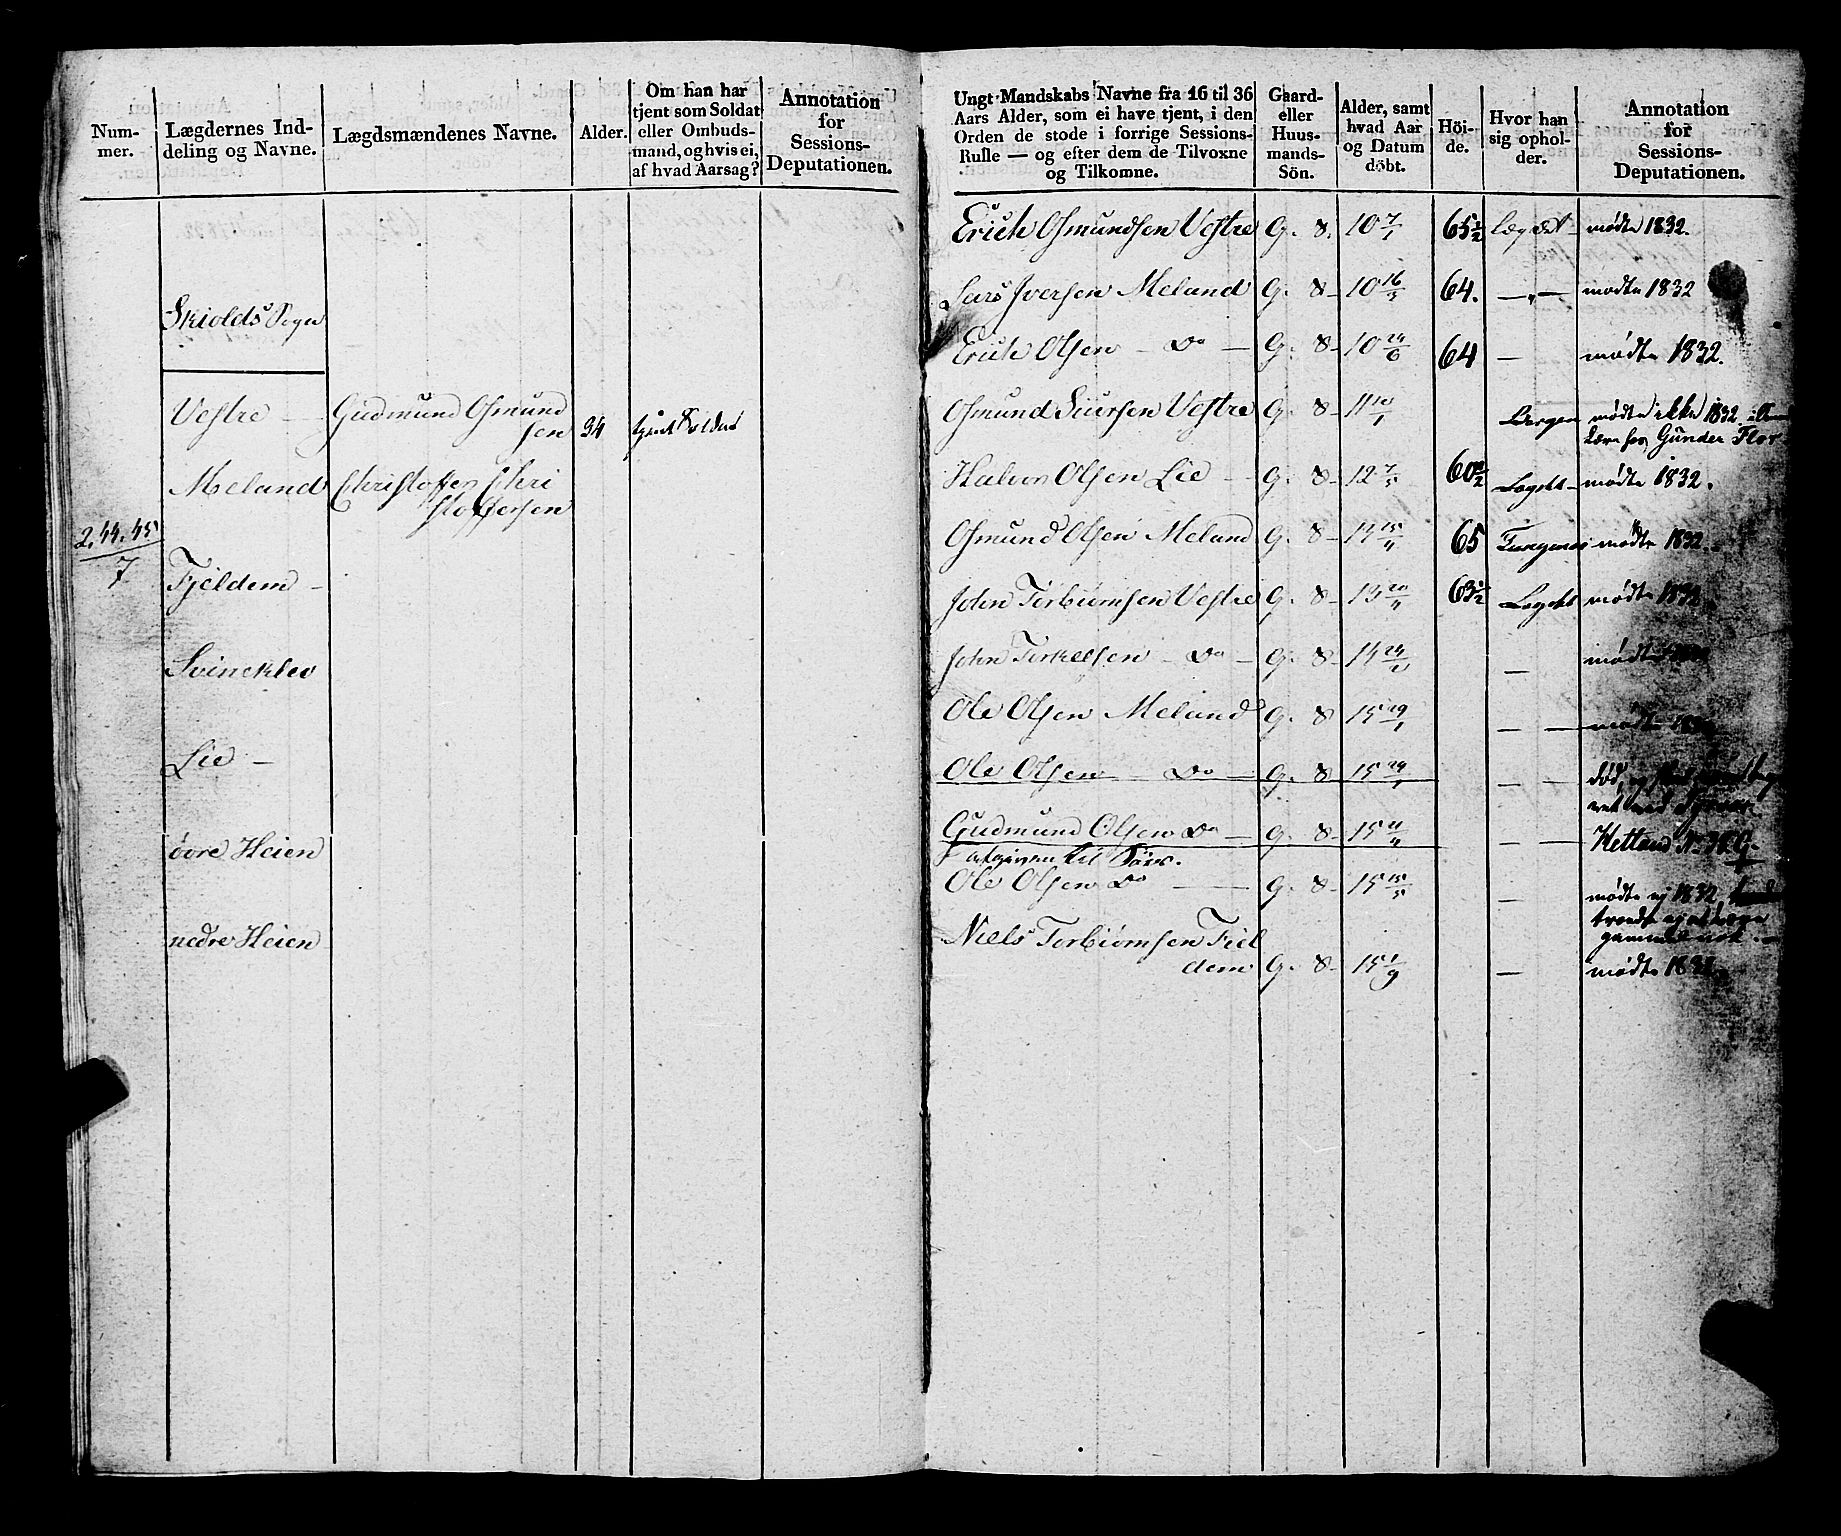 Num-
mer.
Lægdernes Ind-
deling og Navne.
Lægdsmændenes Navne.
Alder.
Om han har
tjent som Soldat
eller Ombuds-
mand, og hvis ei,
af hvad Aarsag?
Annotation
for
Sessions-
Deputationen.
Skiolds Sogn
Vestre - Gudmund Osmund
sen 34 tjent Soldat
Meland Christoffer Chri
stoffersen
2.44.45
7
Fjeldem -
Svinekleo
Lie -
övre Heien
nedre Heien
Ungt Mandskabs Navne fra 16 til 36
Aars Alder, som ei have tjent, i den
Orden de stode i forrige Sessions-
Rulle — og efter dem de Tilvoxne
og Tilkomne.
Gaard-
eller
Huus-
mands-
Sön.
Alder, samt
hvad Aar
og Datum
döbt.
Höi-
de.
Hvor han
sig ophol-
der.
Annotation
for
Sessions-
Deputationen.
Erich Osmundsen Vestre G. 8. 10 7/1 65 1/2 lægdet mödte 1832.
Lars Iversen Meland G. 8 - 10 16/3 64. — " — mödte 1832
Erich Olsen - Do - G. 8 - 10 24/6 64 — mödte 1832.
Osmund Siursen Vestre G. 8 - 11 Bergen mödte ikke 1832.
Gunder Flor
Halvor Olsen Lie - G. 8 - 12 7/5 60 1/2 Lægdet - mödte 1832.
Osmund Olsen Meland G. 8 - 14 15/11 65 mödte 1832.
John Torbiörnsen Vestre G. 8 - 13 20/11 63 1/2 Lægdet mödte 1832.
John Torkelsen - Do - G. 8 - 14 24/2 — mödte
Ole Olsen Meland G. 8 15 29/1 — — mödte
Ole Olsen - Do - G. 8 15 29/1 — — död,
Gudmund Olsen Do - G. 8 - 15 11/11 — — Hetland No 38 G.
afgiven til
Ole Olsen Do — G. 8 - 15 15/5 — mödte ej 1832,
Niels Torbiörnsen Fiel
dem G. 8 - 15 1/9 — mödte 1832